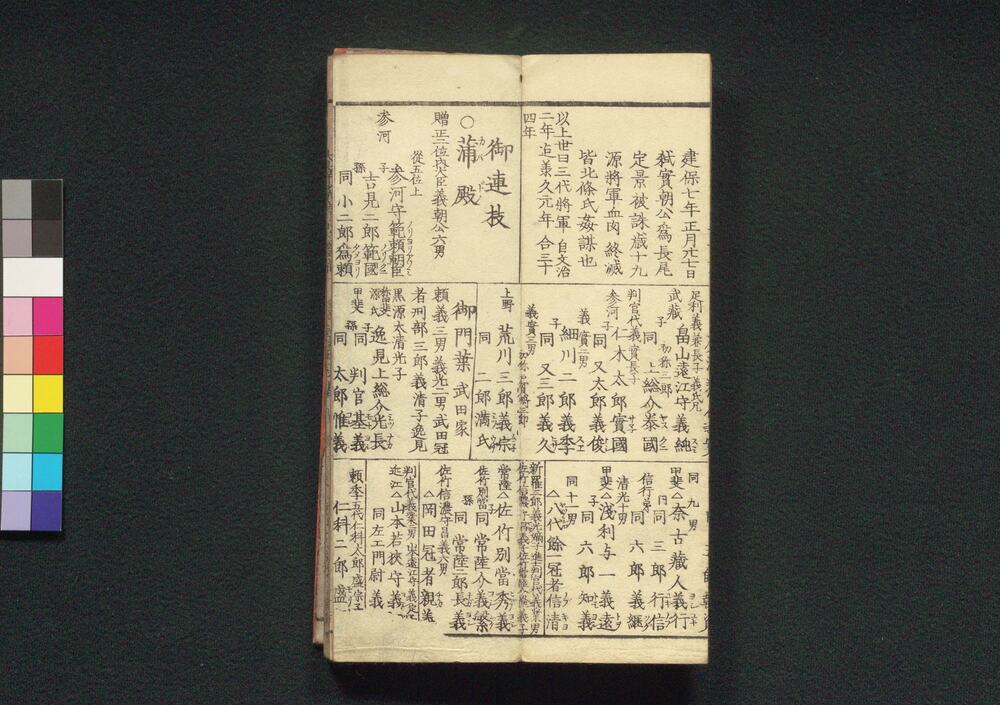 建保七年正月廿七日
弑實朝公爲長尾
定景被誅歳十九
源將軍血肉終滅
皆北條氏姦謀也
以上世曰三代將軍自文治
二年迄兼久元年合三十
四年
御連技
○蒲殿
カバ ドノ
贈正二位内大臣義朝公六男
從五位上
参河 参河守範頼朝臣
子 吉見二郎範國
孫 同小二郎爲頼
足利義兼長子義氏兄
武蔵 畠山遠江守義純
子 初称三郎
同上総介泰國
判官代義實長子
参河 仁木太郎實國
子 同又太郎義俊
義實二男
細川二郎義季
子 同又三郎義久
義實三男
上野 荒川三郎義宗
同二郎満氏
御門葉 武田家
頼義三男義光二男武田冠
者刑部三郎義清子逸見
黒源太清光子
逸見上総介光長
子 同判官基義
甲斐 孫 同太郎惟義
同九男
甲斐△奈古蔵人義行
同三郎行信
信行弟 同六郎義継
清光十男
甲斐△淺利与一義遠
子 同六郎知義
同十一男
△八代餘一冠者信清
常陸△佐竹別當秀義
子 佐竹別當 同常陸介義繁
孫 同常陸二郎長義
佐竹信濃守昌義六男
△岡田冠者親義
近江△山本若狹守義
同左エ門尉義
頼季五代仁科太郎盛宗
仁科二郎盛